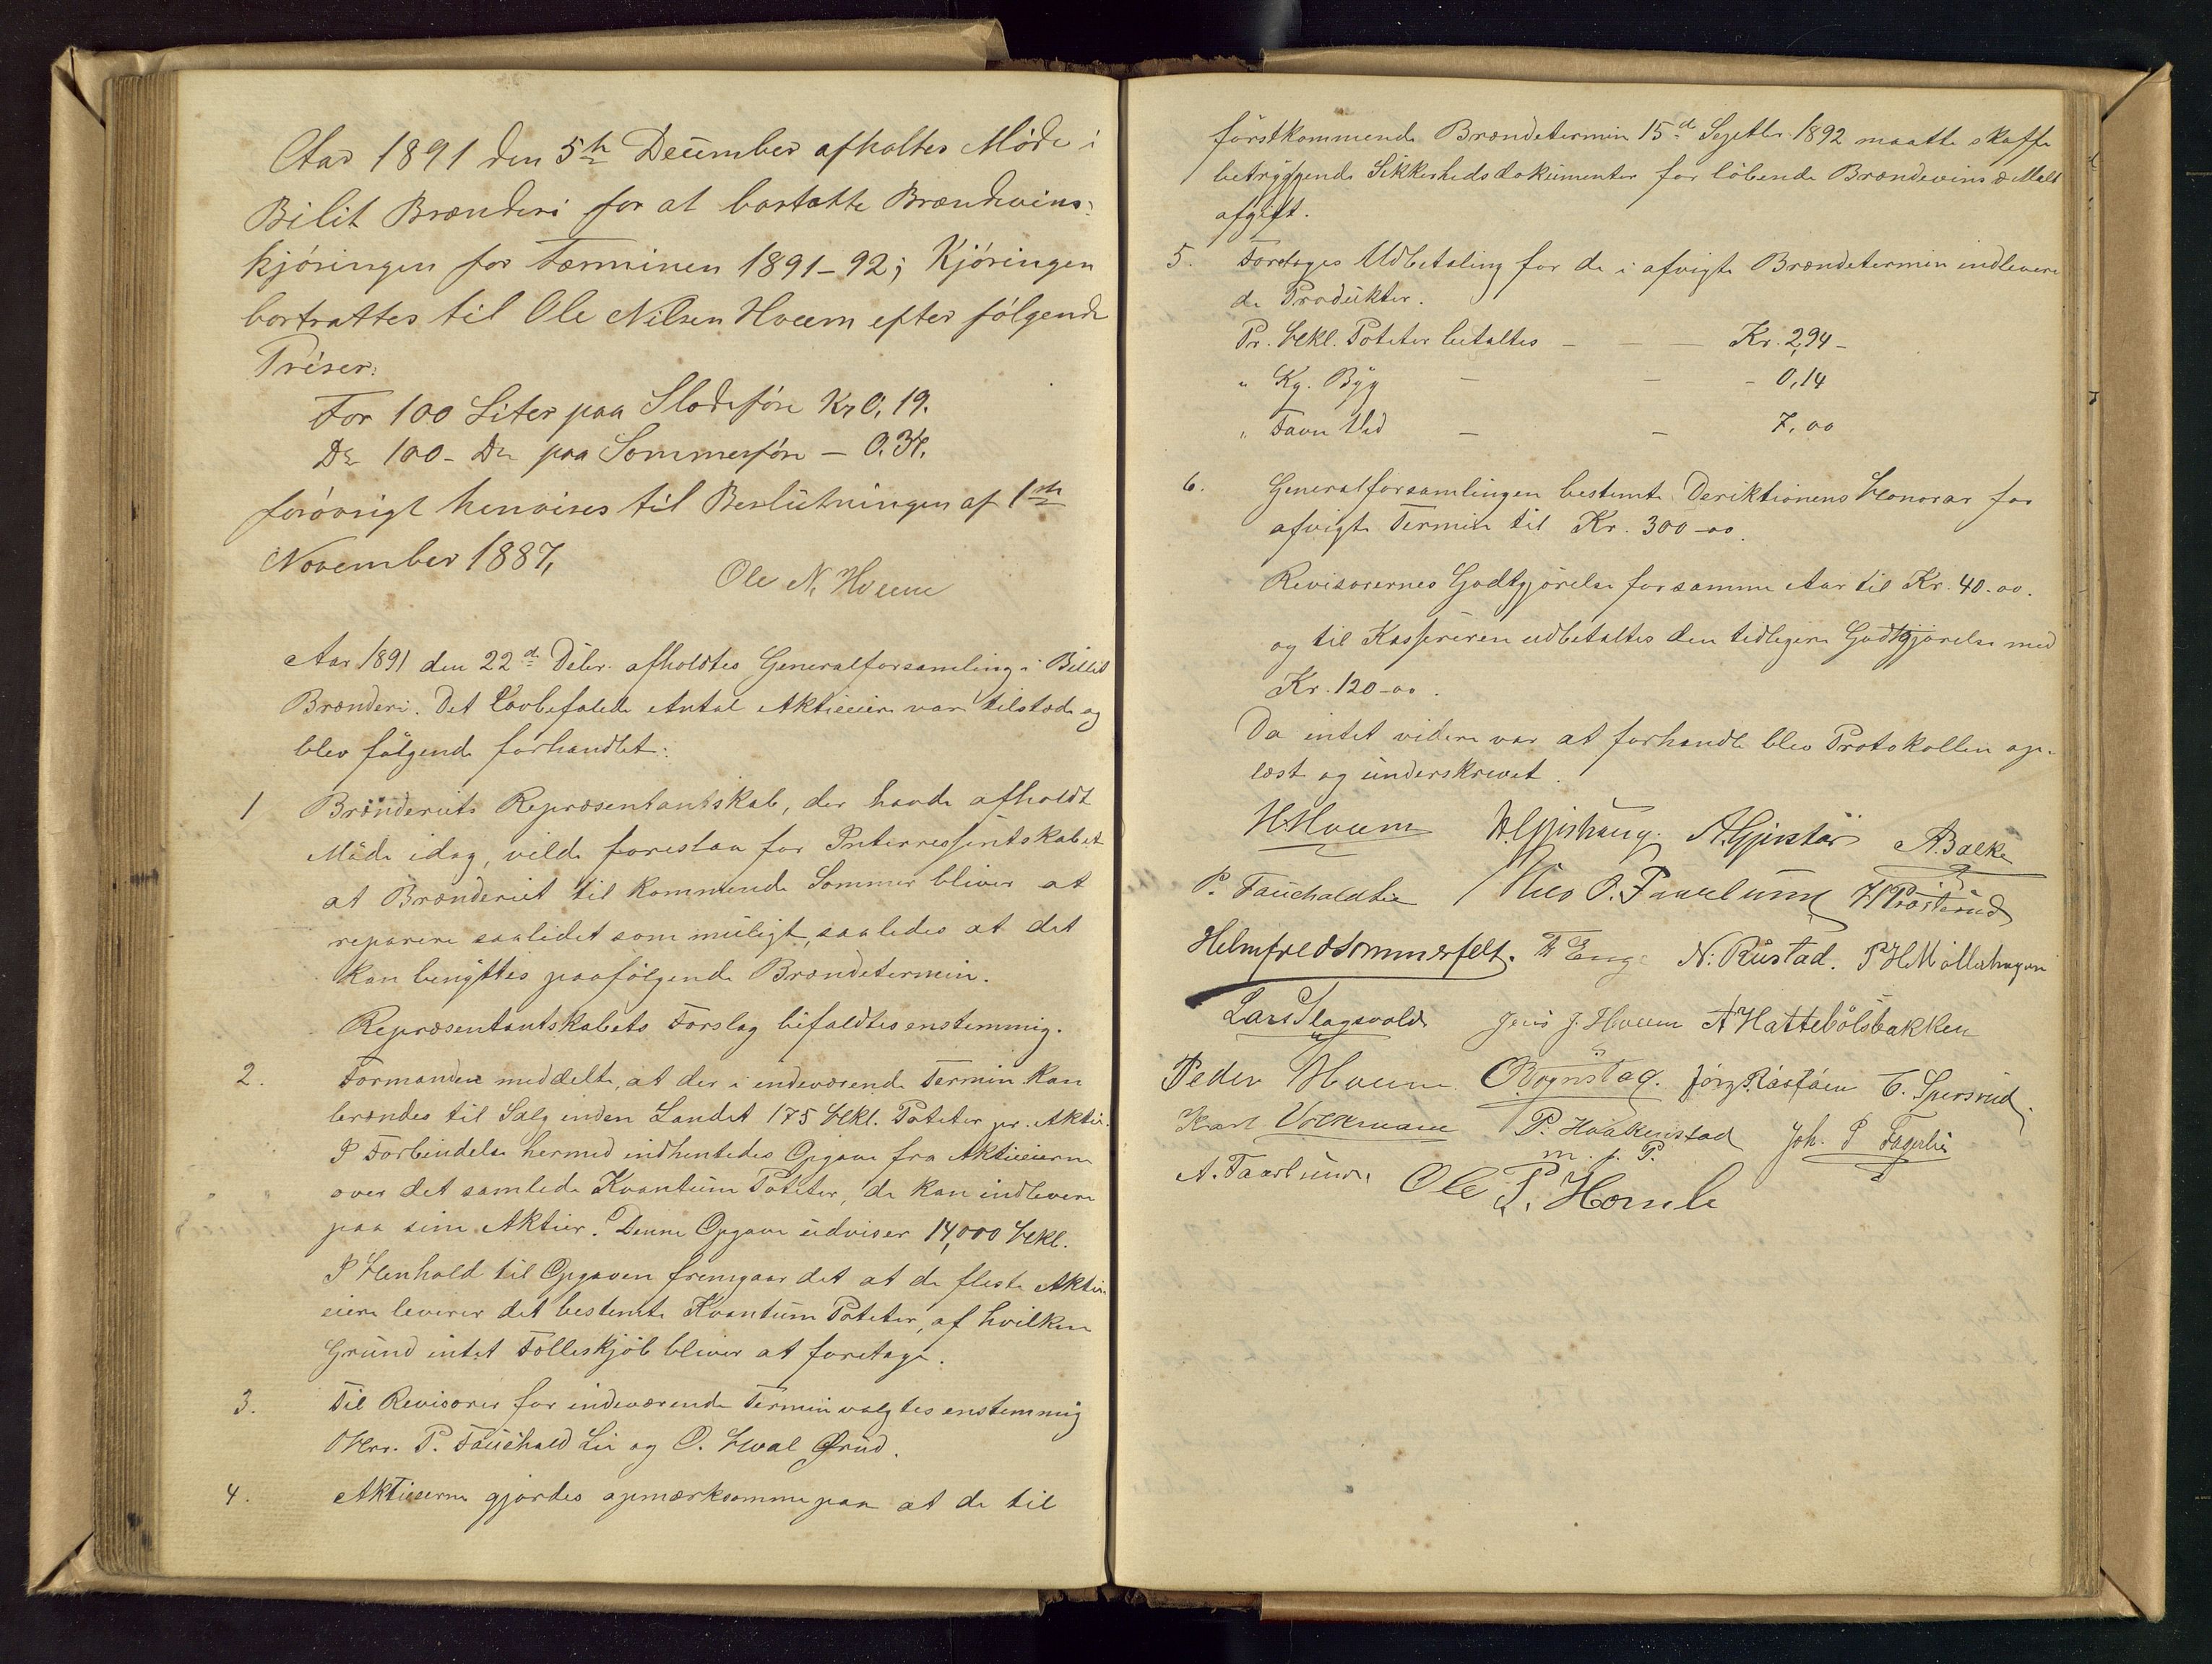 Aar 1891 den 5te December afholtes Möde i
Bilit Brænderi for at bortsette Brændevins-
kjöringen for Terminen 1891-92; Kjöringen
bortsattes til Ole Nilsen Hveem efter fölgende
Priser:
For 100 Liter paa Slædeföre Kr 0,19.
Do 100 - Do paa Sommerföre - 0.34.
forövrigt henvises til Beslutningen af 1ste
November 1887,
Ole N. Hveem
Aar 1891 den 22de Debr. afholdtes Generalforsamling i Billit
Brænderi. Det Lovbefalede Antal Aktieeiere var tilstæde og
blev følgende forhandlet:
1 Brænderiets Repræsentantskab, der havde afholdt
Möde idag, vilde foreslaa for Interressentskabet
at Brænderiet til kommende Sommer bliver at
reparere saalidet som muligt, saaledes at det
kan benyttes paafølgende Brændetermin.
Repræsentantskabets Forslag bifaldtes enstemmig.
2. Formanden meddelte, at der i indeværende Termin kan
brændes til Salg inden Landet 175 Hekl. Poteter pr. Aktie.
I Forbindelse hermed indhentedes Opgave fra Aktieeierne
over det samlede Kvantum Poteter, de kan indlevere
paa sine Aktier. Denne Opgave udviser 14,000 Hekl.
I Henhold til Opgaven fremgaar det at de fleste Aktie-
eiere leverer det bestemte Kvantum Poteter, af hvilken
Grund intet Fælleskjöb bliver at foretage.
3. Til Revisorer for indeværende Termin valgtes enstemmig
Hrr. P. Fauchald Lie og O. Hval Grud.
4. Aktieeierne gjordes opmærksomme paa at de til
förstkommende Brændetermin 15de Septbr 1892 maatte skaffe
betryggende Sikkerhedsdokumenter for löbende Brændevins & Malt
afgift.
5. Foretoges Udbetaling for de i afvigte Brændetermin indlevere
de Produkter.
Pr. Hekl. Poteter betaltes - - - Kr. 2,94 -
" Kg. Byg - - - 0,14
" Favn Ved - - 7,00
6. Generalforsamlingen bestemte Deriktionens Honorar for
afvigte Termin til Kr. 300-00.
Revisorernes Godtgjörelse for samme Aar til Kr. 40.00.
og til Kassereren udbetaltes den tidligere Godtgjörelse med
Kr. 120-00.
Da intet videre var at forhandle blev Protokollen op-
læst og underskrevet.
H. Hveem A. Gjestvang A. Gjestvar A. Balke
P. Fauchald Lie Nils O. Faarlund H. Prösterud
Helmfred Sommerfelt. F Enge N. Rustad. P H Möllerhagen
Lars Slagsvold Jens J. Hveem A Hattebölsbakken
Peder Hveem O. Bögnstad. C. Spersrud
Karl Volkmann P. Haakenstad Joh. P Fagerlie
m. p. P.
A. Faarlund. Ole P. Homle